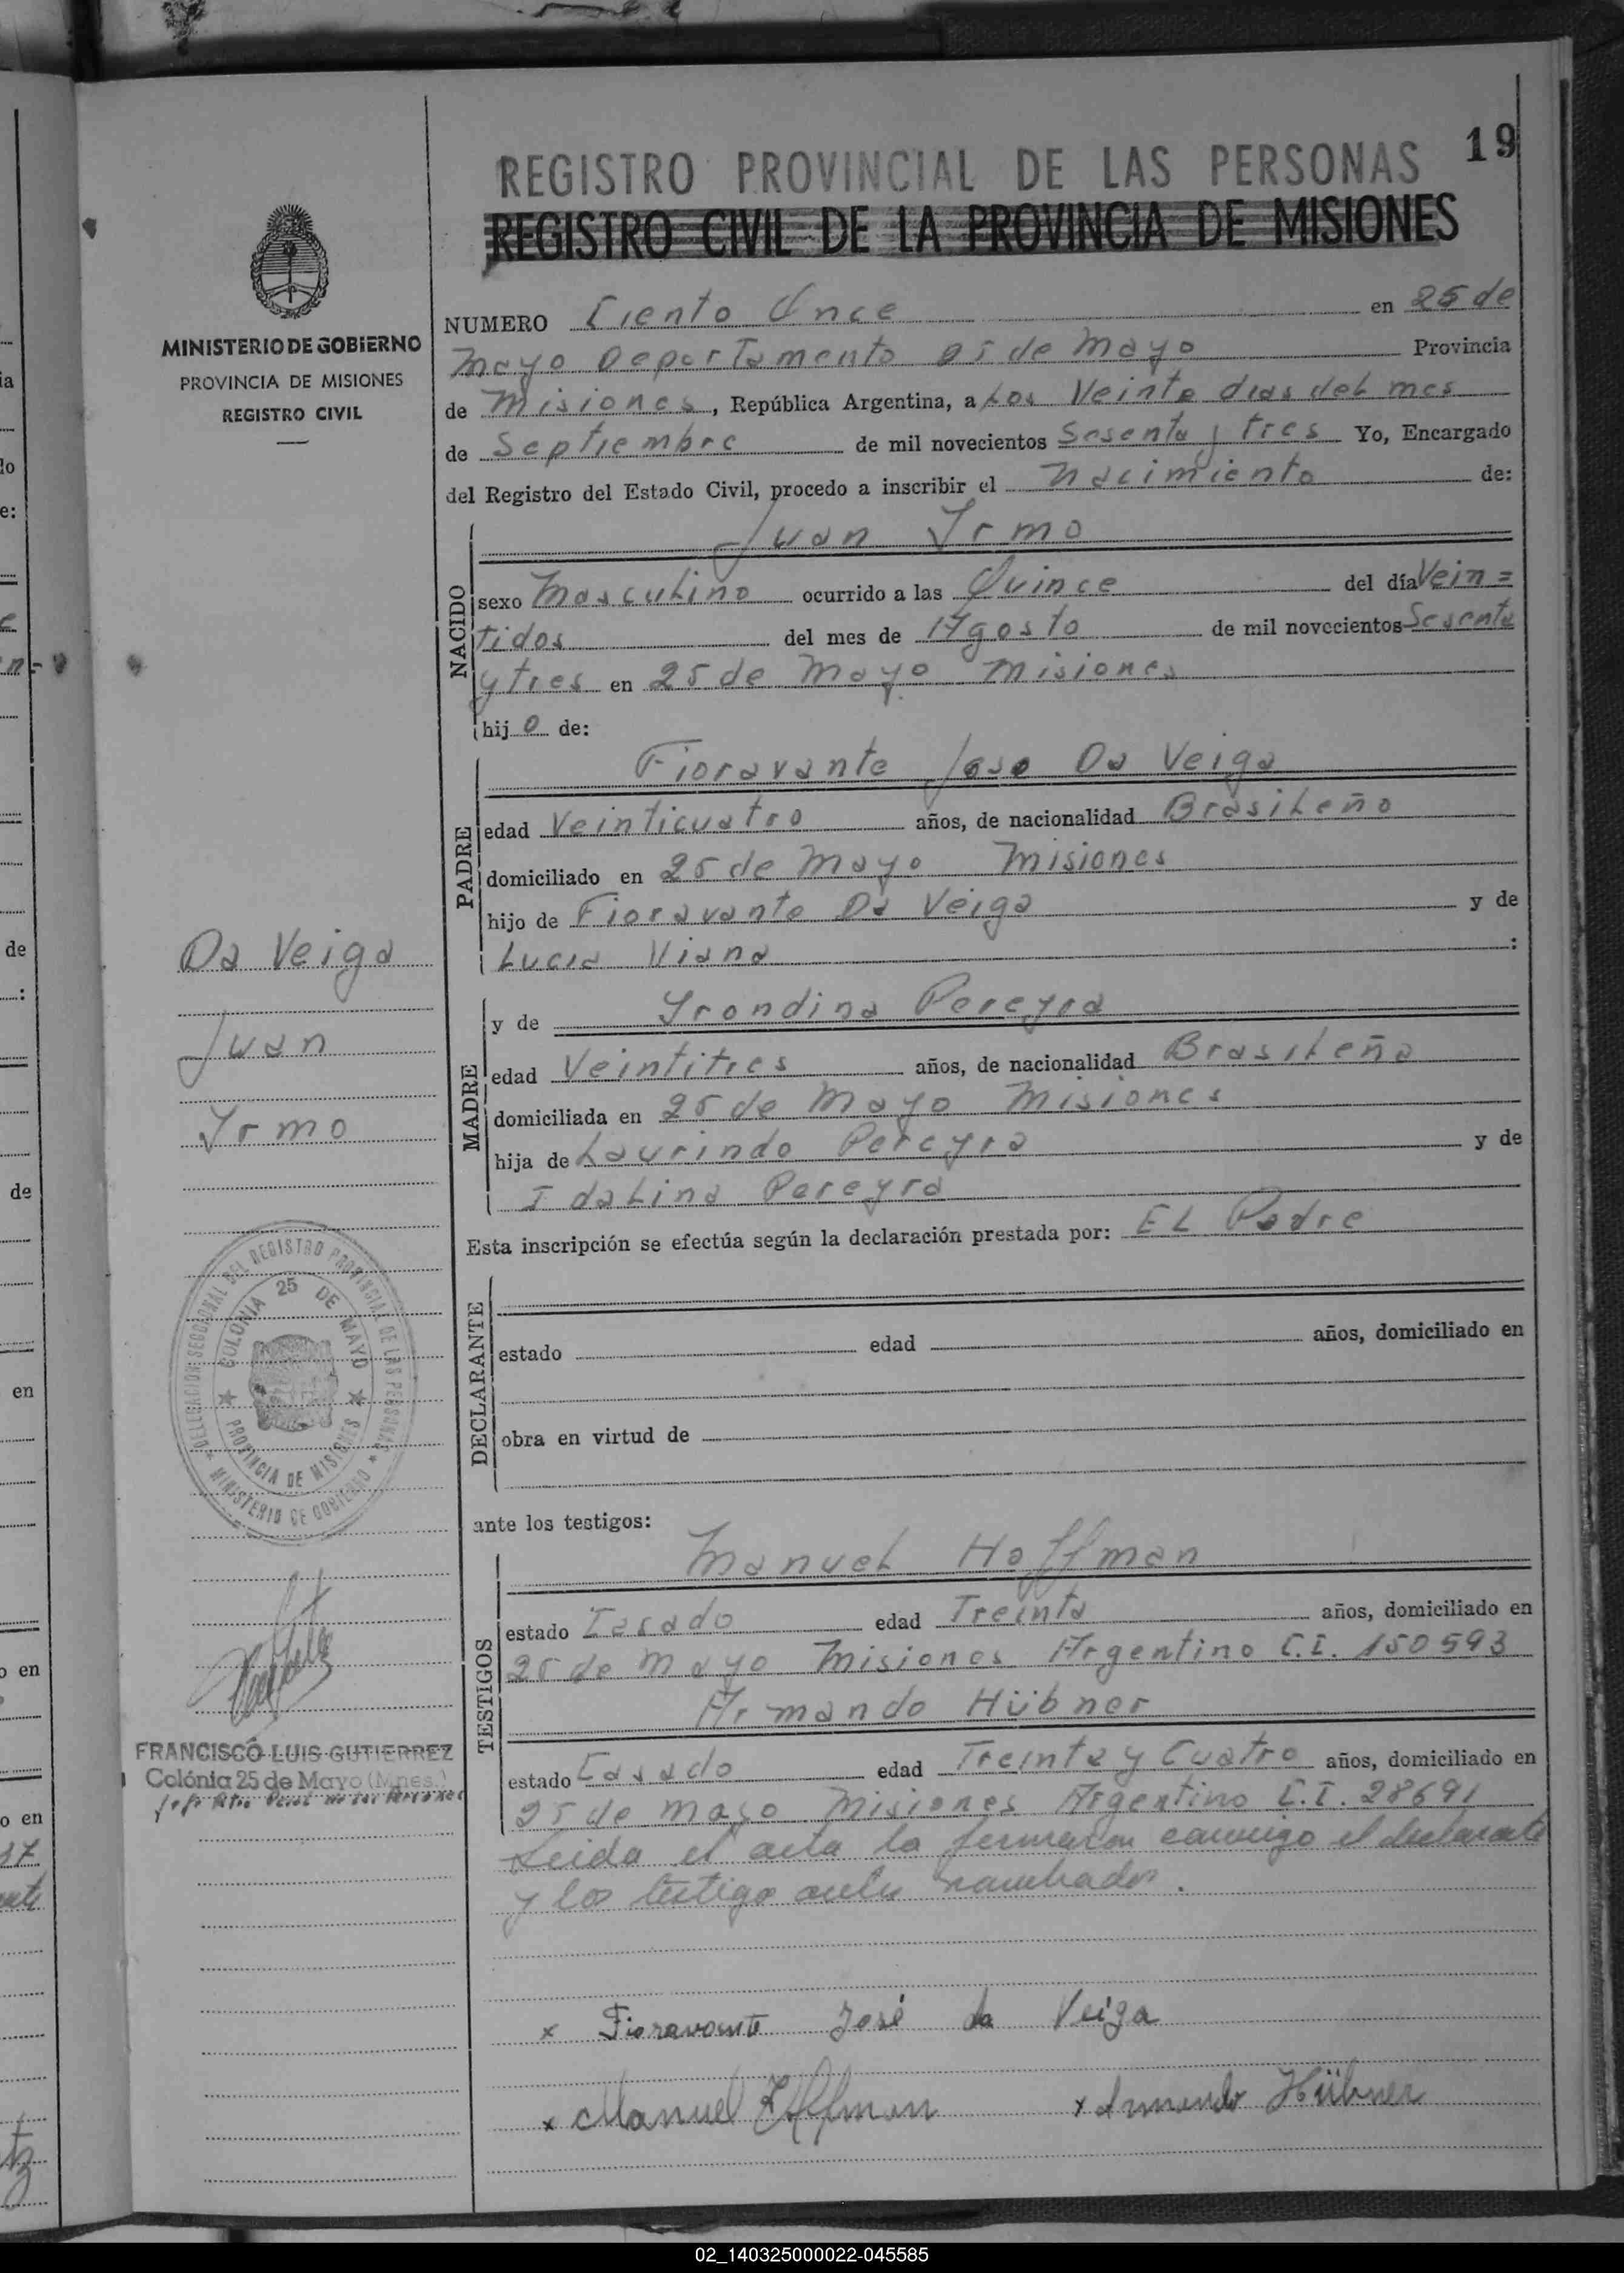 19
REGISTRO PROVINCIAL DE LAS PERSONAS
REGISTRO CIVIL DE LA PROVINCIA DE MISIONES
MINISTERIO DE GOBIERNO
PROVINCIA DE MISIONES
REGISTRO CIVIL
NUMERO Ciento Once en 25 de
Mayo Departamento 25 de Mayo Provincia
de Misiones, República Argentina, a Los Veinte dias del mes
de Septiembre de mil novecientos Sesenta y tres Yo, Encargado
del Registro del Estado Civil, procedo a inscribir el Nacimiento de:
NACIDO
Juan Yrmo
sexo Masculino ocurrido a las Quince del día Vein=
tidos del mes de Agosto de mil novecientos Sesenta
y tres en 25 de Mayo Misiones
hijo de:
PADRE
Fioravante Jose Da Veiga
edad Veinticuatro años, de nacionalidad Brasileño
domiciliado en 25 de Mayo Misiones
hijo de Fioravante Da Veiga y de
Lucia Viana :
MADRE
y de Yrondina Pereyra
edad Veintitres años, de nacionalidad Brasileña
domiciliada en 25 de Mayo Misiones
hija de Laurindo Pereyra y de
Idalina Pereyra
Esta inscripción se efectúa según la declaración prestada por: El Padre
DECLARANTE
estado edad años, domiciliado en
obra en virtud de
ante los testigos:
TESTIGOS
Manuel Hoffman
estado Casado edad Treinta años, domiciliado en
25 de Mayo Misiones Argentino C.I. 150593
Armando Hübner
estado Casado edad Treinta y Cuatro años, domiciliado en
25 de Mayo Misiones Argentino C.I. 28691
Leida el acta la firmaron conmigo el declarante
y los testigo antes nombrados.
x Fioravante José da Veiga
x Manuel Hoffman x Armando Hübner
Da Veiga
Juan
Yrmo
DELEGACION SECCIONAL DEL REGISTRO PROVINCIAL DE LAS PERSONAS
MINISTERIO DE GOBIERNO
COLONIA 25 DE MAYO
PROVINCIA DE MISIONES
FRANCISCO LUIS GUTIERREZ
Colónia 25 de Mayo (Mnes.)
02_140325000022-045585